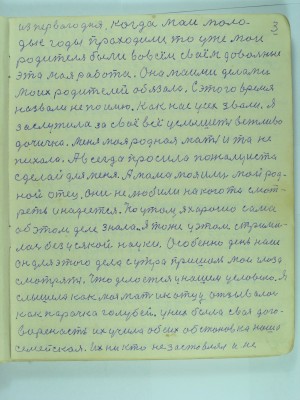 из первого дня, когда мои моло- 3
дые годы проходили то уже мои
родители были во всём своём довольные
эта моя работа. Она моими делами
моих родителей обязала. С этого время
назвали не по имю. Как нас всех звали. Я
заслужила за своё всё услышать вежливо
дочичка. Меня моя родная мать и та не
пихала. А всегда просила пожалуста
сделай для меня. А тома позили мой род-
ной отец. Они не любили на кого то смот-
реть и надется. Поутом я хорошо сама
об этом деле знала. Я тоже у этом стрими-
лась без усякой науки. Особенно день наш
он для этого дела с утра пришол мои глаза
смотрять. Что делается у нашем условою. Я
слышала как моя мать и отцу отзывалась
как парочка голубей. У них была своя дого-
вореность их учила обоих обстановка наша
семейская. Их ни кто не заставлял и не